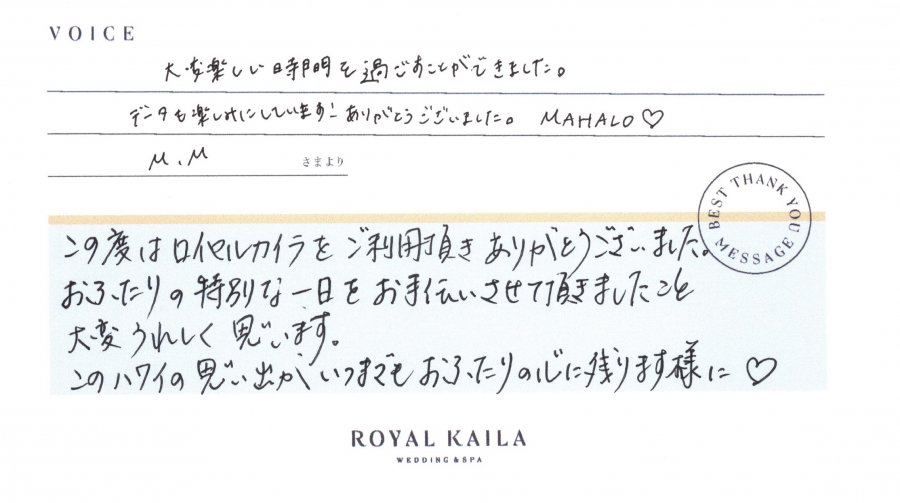 VOICE
大変楽しい時間を過ごすことができました。
データも楽しみにしています! ありがとうございました。 MAHALO♡
M.M さまより
BEST THANK YOU MESSAGE
この度はロイヤルカイラをご利用頂きありがとうございました。
おふたりの特別な一日をお手伝いさせて頂きましたこと
大変うれしく思います。
このハワイの思い出がいつまでもおふたりの心に残ります様に♡
ROYAL KAILA
WEDDING & SPA